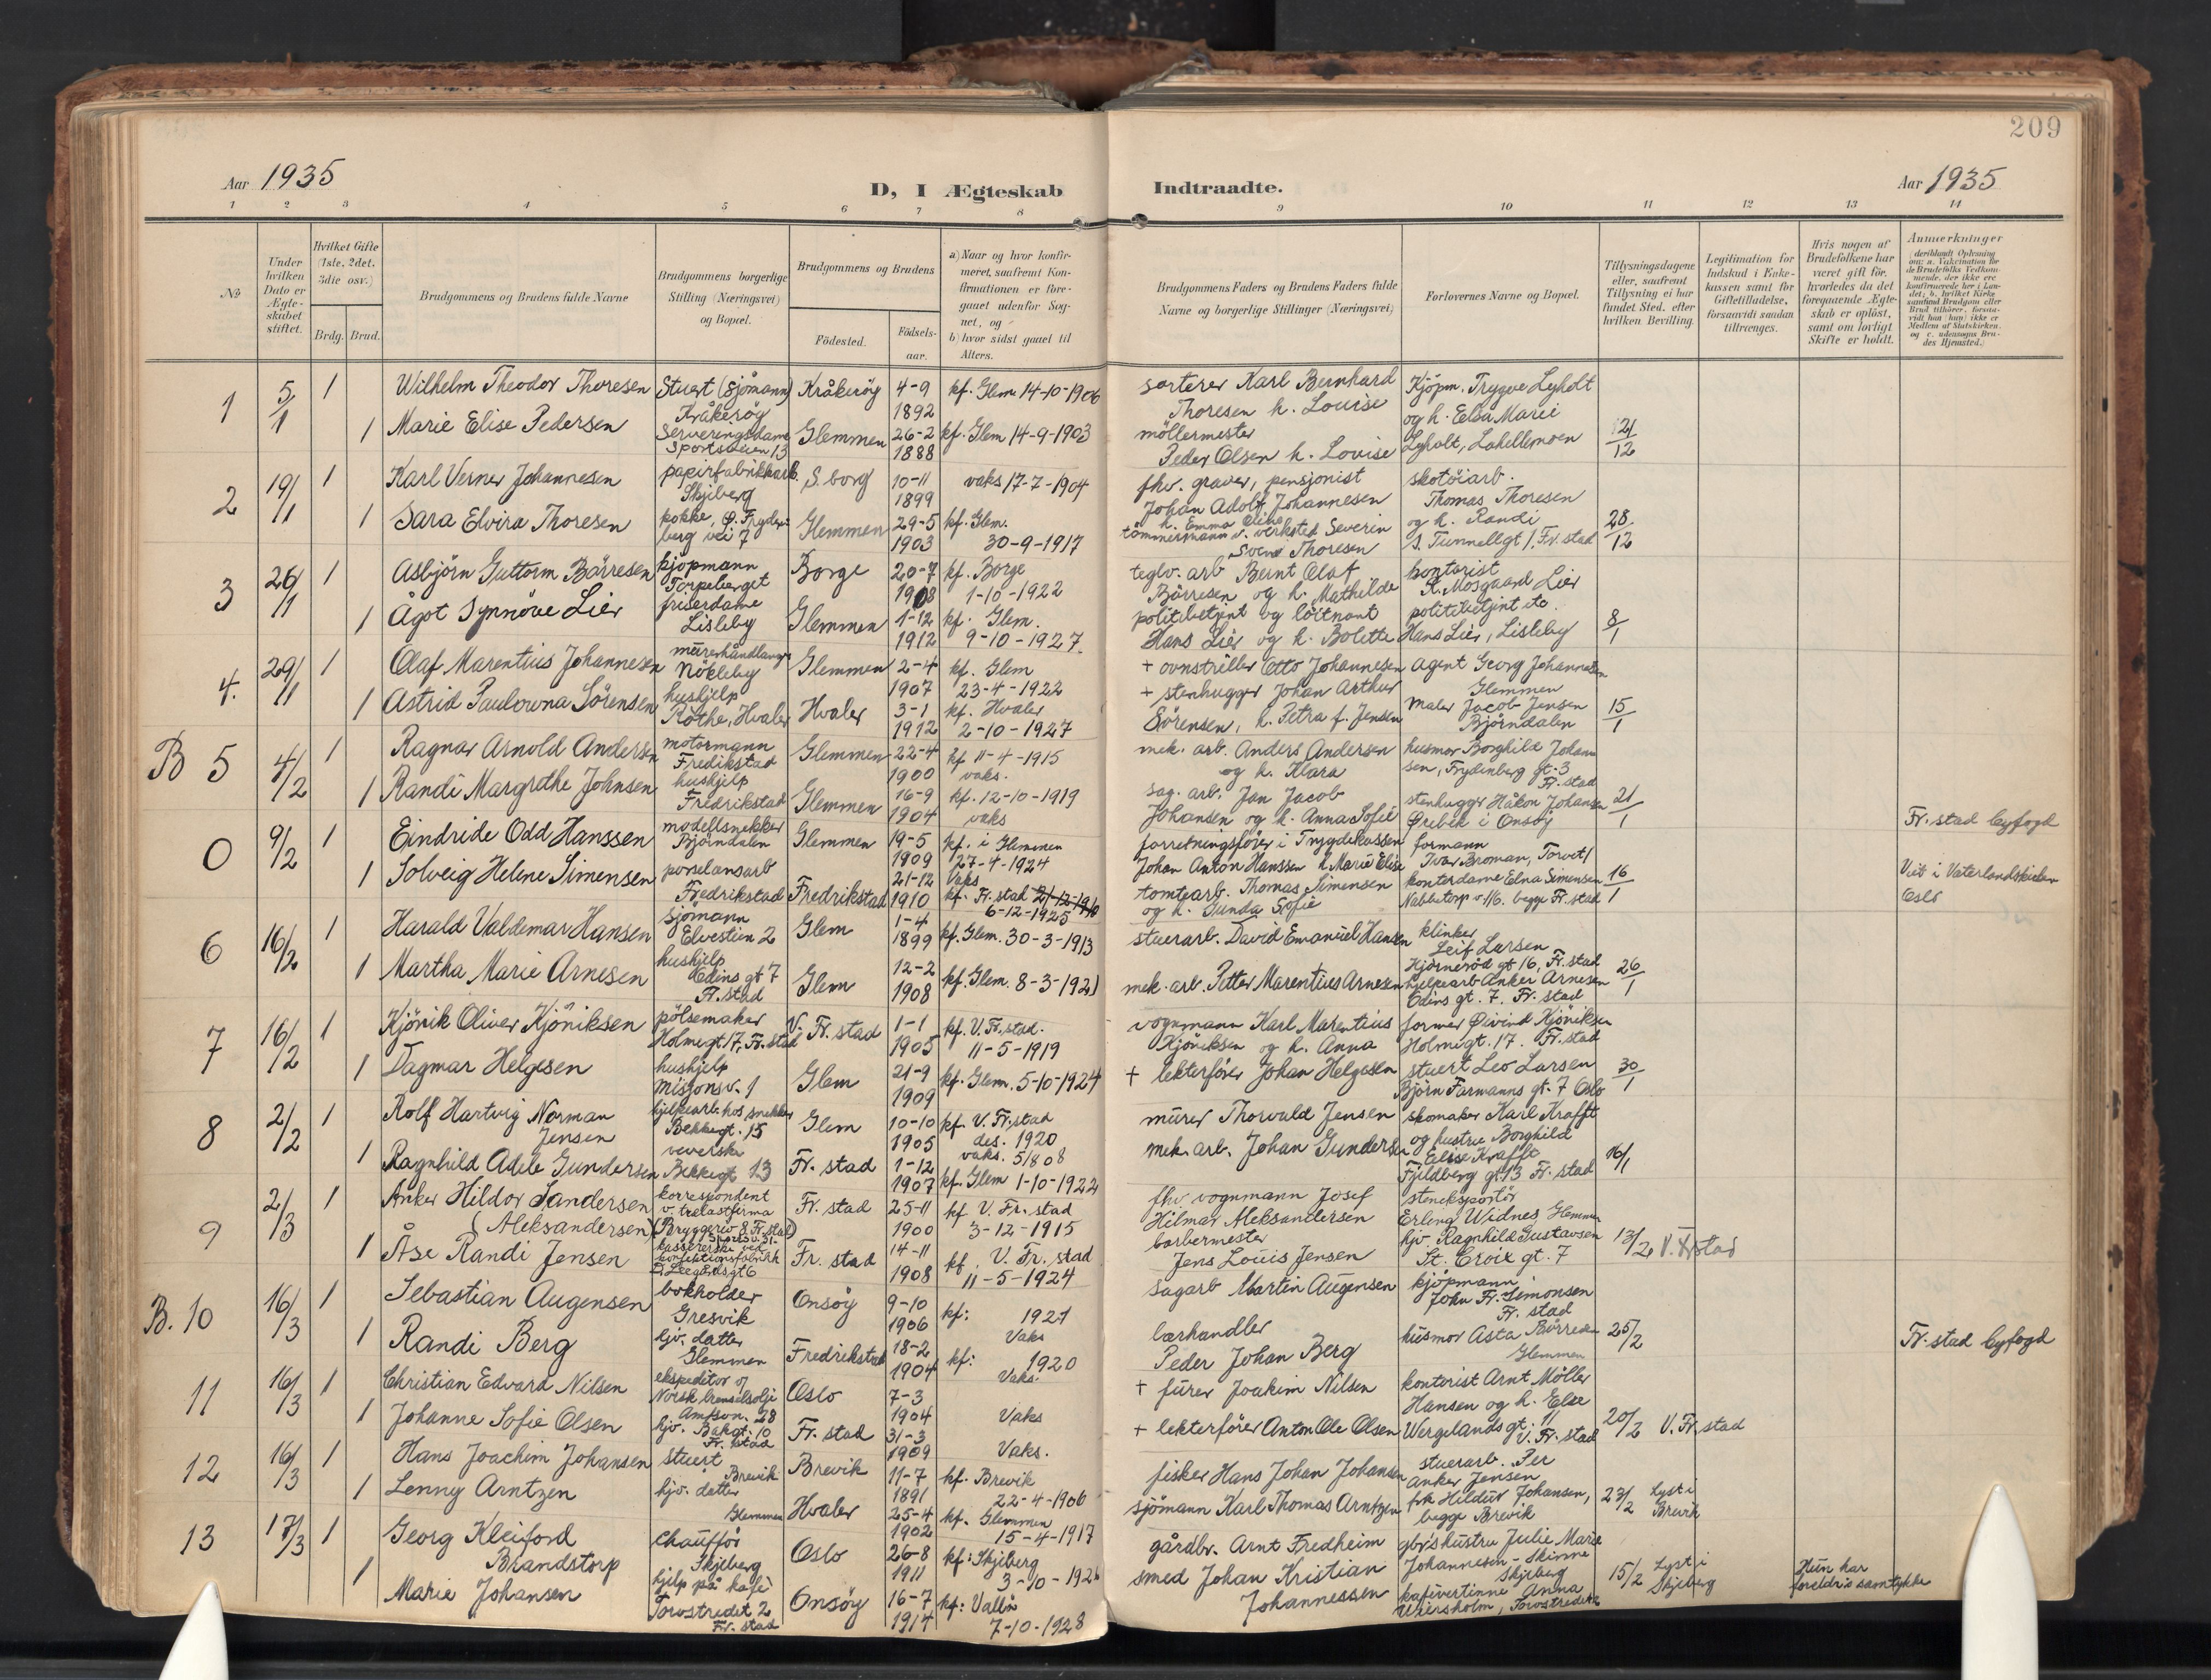 209
Aar 1935
D, I Ægteskab Indtraadte.
Aar 1935
1 2 3 4 5 6 7 8 9 10 11 12 13 14
№
Under hvilken Dato er Ægteskabet stiftet.
Hvilket Gifte (1ste, 2det, 3die osv.)
Brdg. Brud.
Brudgommens og Brudens fulde Navne
Brudgommens borgerlige Stilling (Næringsvei) og Bopæl.
Brudgommens og Brudens
Födested.
Födselsaar.
a) Naar og hvor konfirmeret, saafremt Konfirmationen er foregaaet udenfor Sognet, og
b) hvor sidst gaaet til Alters.
Brudgommens Faders og Brudens Faders fulde Navne og borgerlige Stillinger (Næringsvei)
Forlovernes Navne og Bopæl.
Tillysningsdagene eller, saafremt Tillysning ei har fundet Sted, efter hvilken Bevilling.
Legitimation for Indskud i Enkekassen samt for Giftetilladelse, forsaavidt saadan tiltrænges.
Hvis nogen af Brudefolkene har været gift för, hvorledes da det foregaaende Ægteskab er oplöst, samt om lovligt Skifte er holdt.
Anmerkninger
1 5/1 1 Wilhelm Theodor Thoresen Stuert (sjömann) Kråkeröy Kråkeröy 4-9 1892 kf. Glem 14-10-1906 sorterer Karl Bernhard Thoresen h. Louise Kjöpm. Trygve Lyholt og h. Elsa Marie
1 Marie Elise Pedersen Serveringsdame Glemmen 26-2 1888 kf. Glem 14-9-1903 möllermester Peder Olsen h. Lovise Lyholt, Lahellemoen 21/12
2 19/1 1 Karl Verner Johannesen papirfabrikkarb. Skjeberg S.borg 10-11 1899 vaks 17-7-1904 fhv. graver, pensjonist Johan Adolf Johannesen h. Emma Eline skotöiarb. Thomas Thoresen
1 Sara Elvira Thoresen kokke, Glemmen 29-5 1903 kf. Glem. 30-9-1917 tömmermann v. verksted Severin Thoresen og h. Randi S. Tunnellgt 1, Fr.stad 28/12
3 26/1 1 Asbjörn Guttorm Börresen kjöpmann Torpeberget Borge 20-7 1908 kf. Borge 1-10-1922 teglv. arb Bernt Olaf Börresen og h. Mathilde kontorist K. Mosgaard Lier
1 Ågot Synnöve Lier friserdame Lisleby Glemmen 1-12 1912 kf. Glem. 9-10-1927. politibetjent og löitnant Hans Lier og h. Bolette politibetjent Hans Lier, Lisleby 8/1
4. 29/1 1 Olaf Marentius Johannesen murerhåndlanger Nökleby Glemmen 2-4 1907 kf. Glem 23-4-1922 + ovnstiller Otto Johannesen Agent Georg Johannesen Glemmen
1 Astrid Paulowna Sörensen hushjelp Röthe, Hvaler Hvaler 3-1 1912 kf. Hvaler 2-10-1927 + stenhugger Johan Arthur Sörensen, h. Petra f. Jensen Maler Jacob Jensen Bjørndalen 15/1
B 5 4/2 1 Ragnar Arnold Andersen motormann Fredikstad Glemmen 22-4 1900 kf 11-4-1915 vaks. mek. arb. Anders Andersen og h. Klara husmor Borghild Johansen, Frydenberg gt. 3 Fr.stad
1 Randi Margrethe Johnsen hushjelp Fredrikstad Glemmen 16-9 1904 kf. 12-10-1919 vaks sag. arb. Jan Jacob Johansen og h. Anna Sofie stenhugger Håkon Johansen Ørebek i Onsøy 21/1
0 9/2 1 Eindride Odd Hanssen modellsnekker Bjørndalen Glemmen 19-5 1909 kf. i Glemmen 27-4-1924 forretningsförer i Trygdekassen Johan Anton Hanssen h. Marie Elise formann Ivar Broman, Torvet 1 Fr.stad byfogd
1 Solveig Helene Simensen porselansarb Fredrikstad Fredrikstad 21-12 1910 Vaks kf. Fr.stad 21-12-1910 6-12-1925 tomtearb. Thomas Simensen og h. Gunda Sofie kontordame Elna Simensen begge Fr.stad 16/1 Viet i Vaterlandskirken Oslo
6 16/2 1 Harald Valdemar Hansen sjömann Elvestien 2 Glem 1-4 1899 kf. Glem. 30-3-1913 stuerarb. David Emanuel Hansen klinker Leif Larsen Hjörneröd gt 16, Fr.stad
1 Martha Marie Arnesen hushjelp Odins gt 7 Fr.stad Glem 12-2 1908 kf. Glem. 8-3-1921 mek. arb. Petter Marentius Arnesen hjelpearb Anker Arnesen Odins gt. 7. Fr. stad 26/1
7 16/2 1 Kjönik Oliver Kjöniksen pölsemaker Holmegt 17, Fr.stad V. Fr.stad 1-1 1905 kf. V. Fr.stad. 11-5-1919 vognmann Karl Marentius Kjöniksen og h. Anna former Øivind Kjöniksen Holmegt. 17. Fr.stad
1 Dagmar Helgesen hushjelp misjonsv. 1 Glem 21-9 1909 kf. Glem. 5-10-1924 + lekterförer Johan Helgesen stuert Leo Larsen Björn Farmanns gt. 7 Oslo 30/1
8 2/2 1 Rolf Hartvig Norman Jensen hjelpearb. hos snekker Bekkegt. 15 Glem 10-10 1905 kf. V. Fr.stad des. 1920 vaks. 5/8 08 murer Thorvald Jensen skomaker Karl Krafft og hustru Borghild Elise Krafft
1 Ragnhild Adele Gundersen veverske Bekkegt 13 Fr. stad 1-12 1907 kf. Glem 1-10-1922 mek. arb. Johan Gundersen Fjeldberg gt. 13 Fr. stad 16/1
9 2/3 1 Anker Hildor Sandersen (Aleksandersen) korrespondent v. trelastfirma Fr. stad 25-11 1900 kf V. Fr. stad 3-12-1915 fhv vognmann Josef Hilmar Aleksandersen steneksportör Erling Widnes Glemmen
1 Åse Randi Jensen kassererske ved konfektionsfabrikk Fr. stad 14-11 1908 kf. V. Fr. stad 11-5-1924 barbermester Jens Louis Jensen hjv. Ragnhild Gustavsen St. Croix gt. 7 13/2 V. Frstad
B. 10 16/3 1 Sebastian Augensen bokholder Gresvik Onsöy 9-10 1906 kf: 1921 Vaks sagarb Martin Augensen kjöpmann John Fr. Simonsen Fr. stad
1 Randi Berg hjv. datter Glemmen Fredrikstad 18-2 1904 kf: 1920 Vaks. lærhandler Peder Johan Berg husmor Asta Börresen Glemmen 25/2 Fr.stad byfogd
11 16/3 1 Christian Edvard Nilsen ekspeditör Norsk brenselsolje Oslo 7-3 1904 Vaks + fürer Joakim Nilsen kontorist Arnt Möller Hansen og h. Else
1 Johanne Sofie Olsen hjv. Bakgt. 10 Fr. stad Fr. stad 31-3 1909 Vaks. + lekterförer Anton Ole Olsen Wergelands gt. 11 V. Fr. stad 20/2 V. Fr.stad
12 16/3 1 Hans Joachim Johansen stuert Brevik Brevik 11-7 1891 kf. Brevik 22-4-1906 fisker Hans Johan Johansen stuerarb. Per Anker Jensen
1 Lenny Arntzen hjv. datter Glemmen Hvaler 25-4 1902 kf. Glemmen 15-4-1917 sjömann Karl Thomas Arntzen frk Hildur Johansen, begge Brevik 23/2 Lyst i Brevik
13 17/3 1 Georg Kleiford Brandstorp chaufför Skjeberg Oslo 26-8 1911 kf: Skjeberg 3-10-1926 gårdbr. Arnt Fredheim gbr's hustru Julie Marie Johannesen - Skinne Skjeberg
1 Marie Johansen hjelp på kafe Torvstredet 2 Fr. stad Onsöy 16-7 1914 kf: Vallö 7-10-1928 smed Johan Kristian Johannessen kafévertinne Anna Torvstredet 15/2 Lyst i Skjeberg Hun har foreldres samtykke